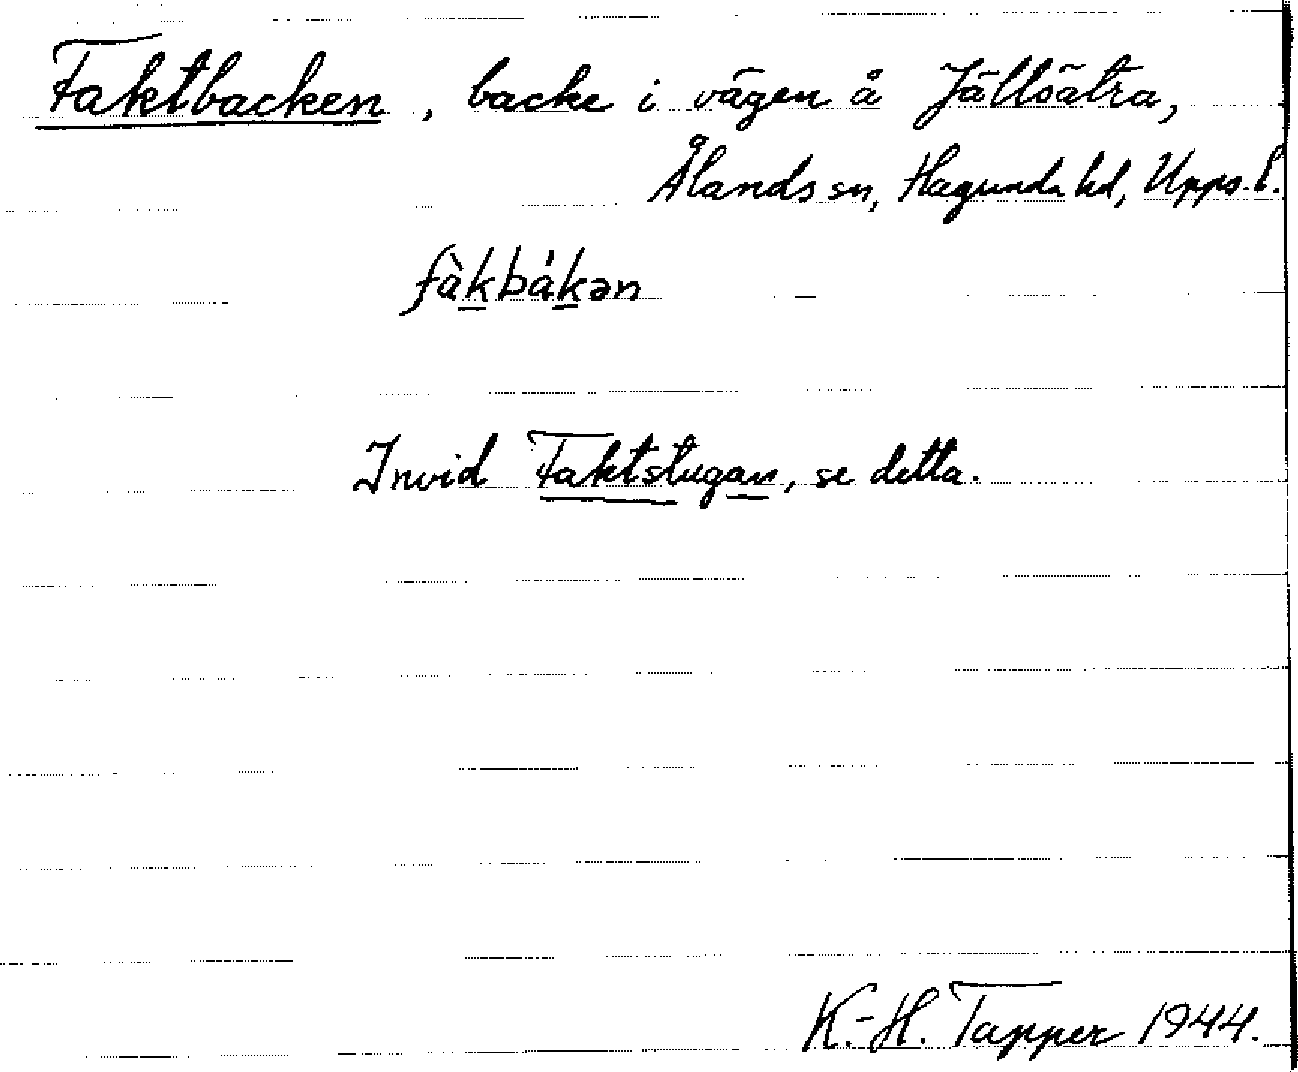 Faktbacken, backe i vägen å Jällsätra,
Ålands sn, Hagunda hd, Upps. l.
fàkbákən
Invid Faktstugan, se detta.
K.-H. Tapper 1944.